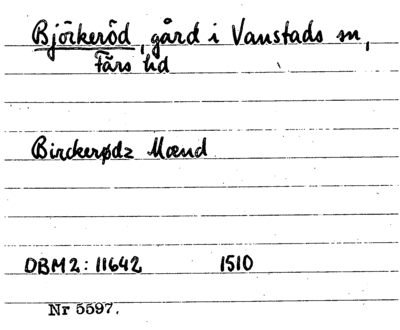 Björkeröd, gård i Vanstads sn,
Färs hd
Birckerødz Mænd
DBM 2: 11642 1510
Nr 5597.